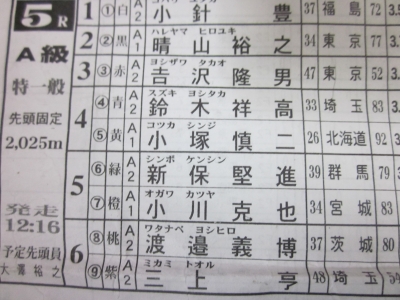 5R
A級
特一般
先頭固定
2,025m
発走
12:16
予定先頭員
1 ① 白 A2 小針 豊 37 福島 72
2 ② 黒 A1 ハレヤマ ヒロユキ 晴山裕之 34 東京 77
3 ③ 赤 A2 ヨシザワ タカオ 吉沢隆男 47 東京 52
4 ④ 青 A2 スズキ ヨシタカ 鈴木祥高 33 埼玉 83
⑤ 黄 A1 コツカ シンジ 小塚慎二 26 北海道 92
5 ⑥ 緑 A2 シンボ ケンシン 新保堅進 39 群馬 79
⑦ 橙 A1 オガワ カツヤ 小川克也 34 宮城 83
6 ⑧ 桃 A2 ワタナベ ヨシヒロ 渡邉義博 37 茨城 80
⑨ 紫 A2 ミカミ トオル 三上 亨 48 埼玉